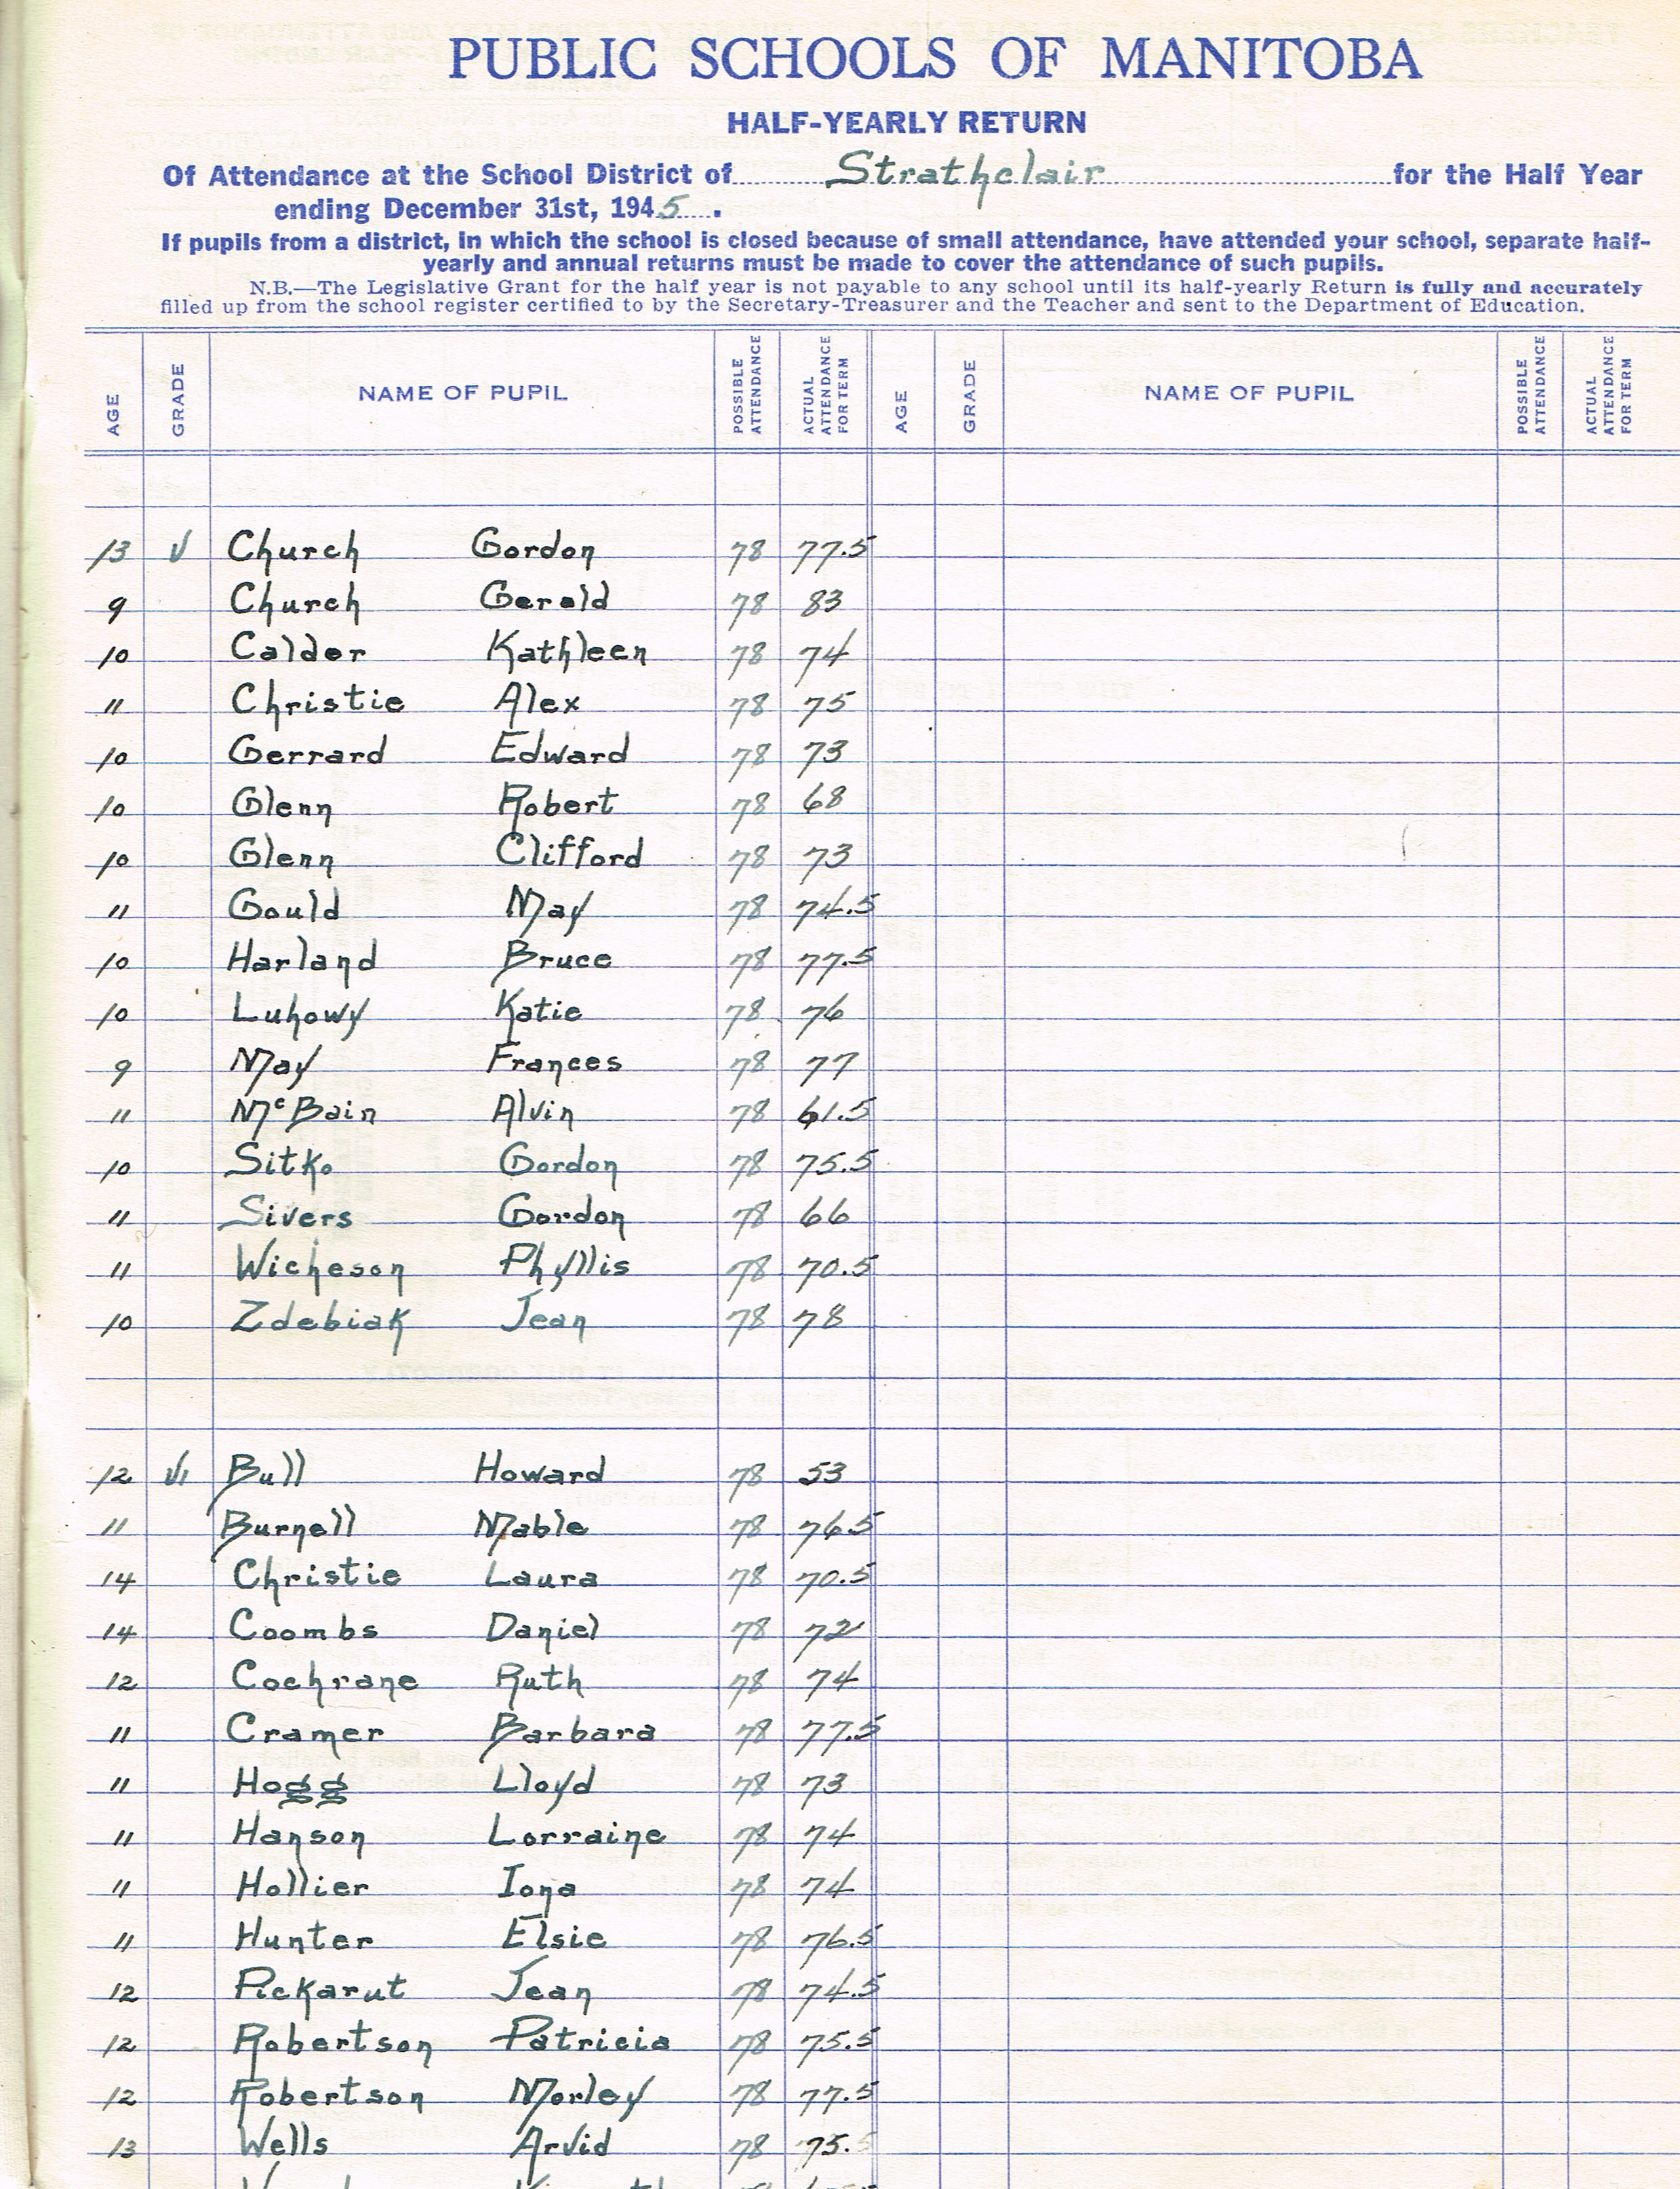 PUBLIC SCHOOLS OF MANITOBA
HALF-YEARLY RETURN
Of Attendance at the School District of Strathclair for the Half Year
ending December 31st, 1945.
If pupils from a district, in which the school is closed because of small attendance, have attended your school, separate half-
yearly and annual returns must be made to cover the attendance of such pupils.
N.B.—The Legislative Grant for the half year is not payable to any school until its half-yearly Return is fully and accurately
filled up from the school register certified to by the Secretary-Treasurer and the Teacher and sent to the Department of Education.
AGE GRADE NAME OF PUPIL POSSIBLE ATTENDANCE ACTUAL ATTENDANCE FOR TERM AGE GRADE NAME OF PUPIL POSSIBLE ATTENDANCE ACTUAL ATTENDANCE FOR TERM
13 V Church Gordon 78 77.5
9 Church Gerald 78 83
10 Calder Kathleen 78 74
11 Christie Alex 78 75
10 Gerrard Edward 78 73
10 Glenn Robert 78 68
10 Glenn Clifford 78 73
11 Gould May 78 74.5
10 Harland Bruce 78 77.5
10 Luhowy Katie 78 76
9 May Frances 78 77
11 McBain Alvin 78 61.5
10 Sitko Gordon 78 75.5
11 Sivers Gordon 78 66
11 Wicheson Phyllis 78 70.5
10 Zdebiak Jean 78 78
12 VI Bull Howard 78 53
11 Burnell Mable 78 76.5
14 Christie Laura 78 70.5
14 Coombs Daniel 78 72
12 Cochrane Ruth 78 74
11 Cramer Barbara 78 77.5
11 Hogg Lloyd 78 73
11 Hanson Lorraine 78 74
11 Hollier Iona 78 74
11 Hunter Elsie 78 76.5
12 Pickarut Jean 78 74.5
12 Robertson Patricia 78 75.5
12 Robertson Morley 78 77.5
13 Wells Arvid 78 75.5